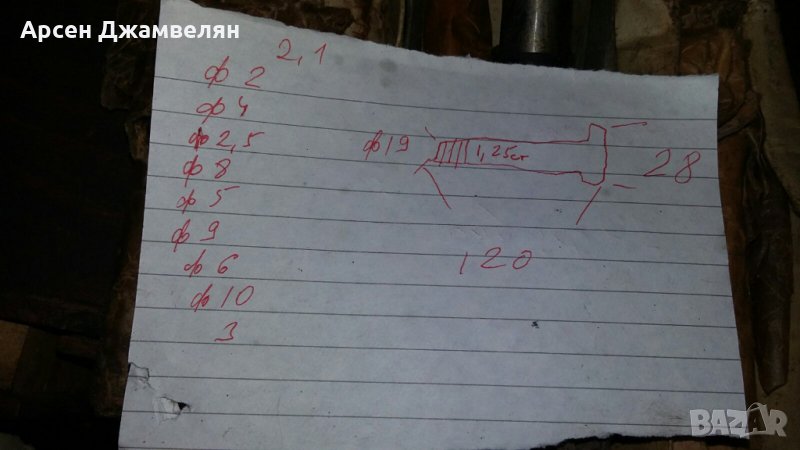 Арсен Джамвелян
2,1
ф 2
ф 4
ф 2,5
ф 8
ф 5
ф 9
ф 6
ф 10
3
ф 19
1,25ст
28
120
BAZAR